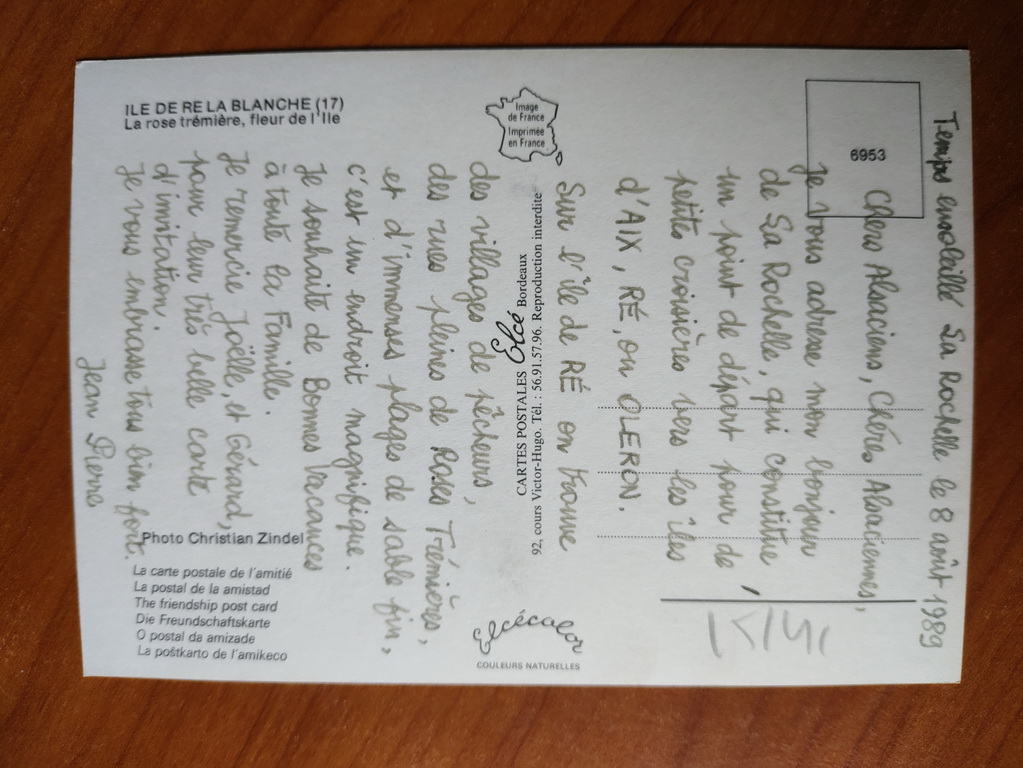 ILE DE RE LA BLANCHE (17)
La rose trémière, fleur de l'Ile
Image
de France
Imprimée
en France
6953
CARTES POSTALES Elcé Bordeaux
92, cours Victor-Hugo. Tél. : 56.91.57.96. Reproduction interdite
Photo Christian Zindel
La carte postale de l'amitié
La postal de la amistad
The friendship post card
Die Freundschaftskarte
O postal da amizade
La poŝtkarto de l'amikeco
Elcécolor
COULEURS NATURELLES
Temps ensoleillé La Rochelle le 8 août 1989
Chers Alsaciens, Chères Alsaciennes,
Je vous adresse mon bonjour
de La Rochelle, qui constitue
un point de départ pour de
petites croisières vers les îles
d'AIX, RÉ, ou OLERON.
Sur l'île de RÉ on trouve
des villages de pêcheurs,
des rues pleines de Roses Trémières,
et d'immenses plages de sable fin,
c'est un endroit magnifique.
Je souhaite de Bonnes Vacances
à toute la Famille.
Je remercie Joëlle, et Gérard,
pour leur très belle carte
d'invitation.
Je vous embrasse tous bien fort.
Jean Pierre